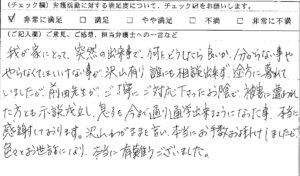 (チェック欄) 弁護活動に対する満足度について、チェック☑をお願いします。
☑ 非常に満足 □ 満足 □ やや満足 □ 不満 □ 非常に不満
(ご記入欄) ご意見、ご感想、担当弁護士への一言など
我が家にとって、突然の出来事で、何をどうしたら良いか、分からない事や
やらなくてはいけない事が沢山有り誰にも相談出来ず途方に暮れて
いましたが前田先生が、ご丁寧にご対応下さったお陰で、被害に遭われ
た方とも示談成立し、息子も今まで通り通学出来るようになった事、本当に
感謝しております。沢山わがままを言い、本当にお手数お掛けしましたが
色々とお世話になり、本当に有難うございました。